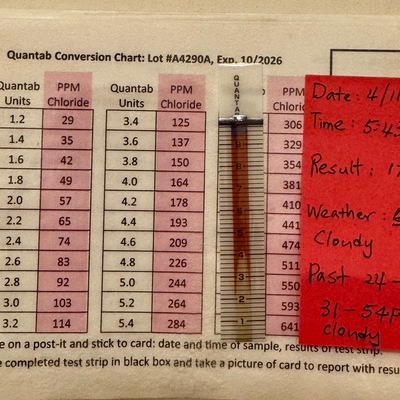 Quantab Conversion Chart: Lot #A4290A, Exp. 10/2026
Quantab Units PPM Chloride Quantab Units PPM Chloride
1.2 29 3.4 125 306
1.4 35 3.6 137 329
1.6 42 3.8 150 354
1.8 49 4.0 164 381
2.0 57 4.2 178 410
2.2 65 4.4 193 441
2.4 74 4.6 209 474
2.6 83 4.8 226 511
2.8 92 5.0 244 550
3.0 103 5.2 264 593
3.2 114 5.4 284 641
QUANTAB
9
8
7
6
5
4
3
2
1
Date: 4/11
Time: 5:43
Result:
Weather:
Cloudy
Past 24-
31-54F
cloudy
e on a post-it and stick to card: date and time of sample, results of test strip.
e completed test strip in black box and take a picture of card to report with resu